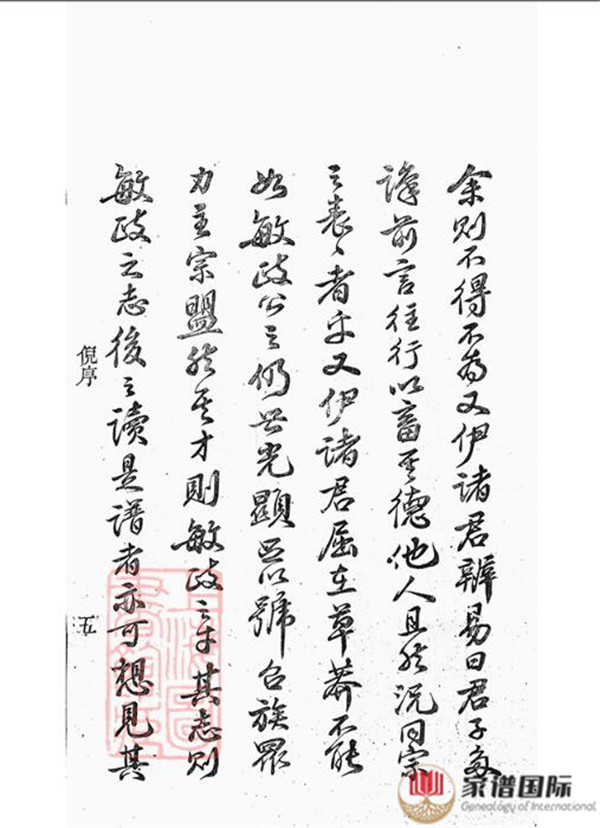 余則不得不為又伊諸君辨易曰君子多
識前言往行以畜其德他人且然況同宗
之表表者乎又伊諸君屈在草莽不能
如敏政公之仍世光顯足以號召族眾
力主宗盟然其才則敏政之才其志則
敏政之志後之讀是譜者亦可想見其
倪序
五
家谱国际
Genealogy of International